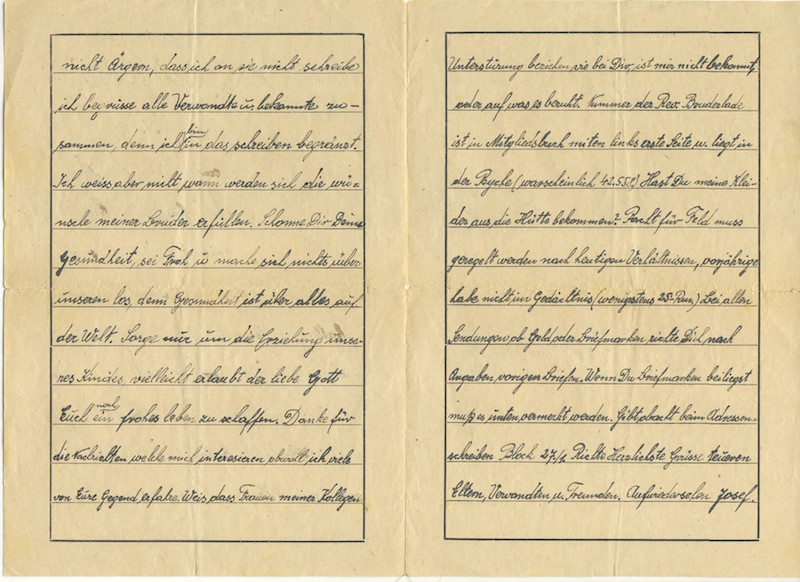 nicht Ärgern, dass ich an sie nicht schreibe
ich begrüsse alle Verwandte u. bekannte zu-
sammen, denn ich bin in das schreiben begränzt.
Ich weiss aber nicht wann werden sich die wü-
nsche meiner Bruder erfüllen. Schonne Dir Deine
Gesundheit, sei Froh u mache sich nichts über
unseren los, denn Gesundheit ist über alles auf
der Welt. Sorge nur um die Erziehung unse-
res Kindes, vielleicht erlaubt der liebe Gott
Euch noch ein frohes leben zu schaffen. Danke für
die Nachrichten welche mich interesieren obwohl ich viele
von Eure Gegend erfahre. Weis, dass Frauen meiner Kollegen
Unterstürung beziehen wie bei Dir, ist mir nicht bekannt,
oder auf was es beruht. Nummer der Rev. Bruderlade
ist in Mitgliedsbuch miten links erste Seite u. liegt in
der Psyche (warscheinlich 42.555?) Hast Du meine Klei-
der aus die Hütte bekommen? Pacht für Feld muss
geregelt werden nach heutigen Verhältnissen, vorjährige
habe nicht im Gedächtnis (wenigstens 25-) Bei allen
Sendungen ob Geld oder Briefmarken richte Dich nach
Angaben vorigen Briefen. Wenn Du Briefmarken beiliegst
muß es unten vermerkt werden. Gibt obacht beim Adressen-
schreiben Block 27/2 Richte Herzlichste Grüsse teueren
Eltern, Verwandten u. Freunden. Aufwiedersehen Josef.